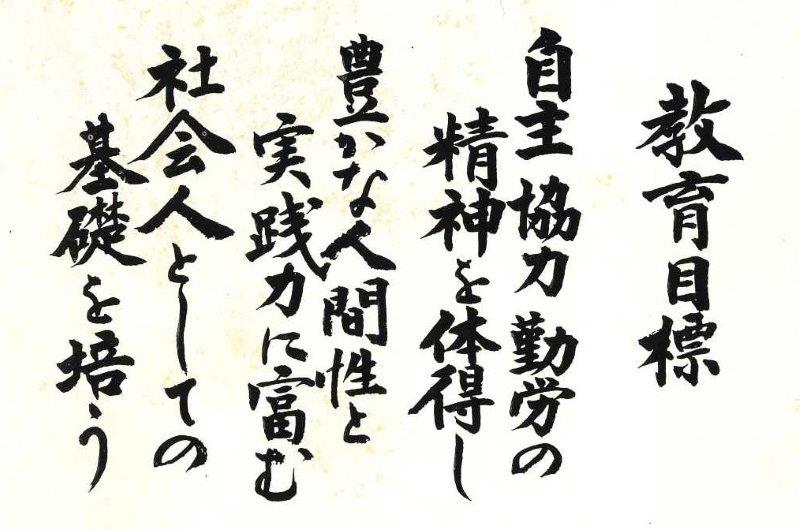 教育目標
自主 協力 勤労の
精神を体得し
豊かな人間性と
実践力に富む
社会人としての
基礎を培う